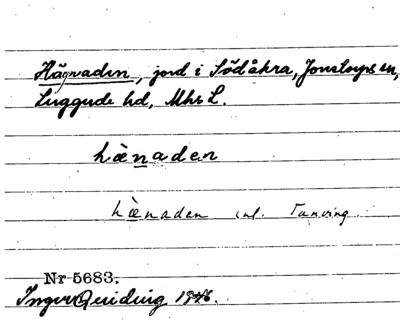 Hägnaden, jord i Södåkra, Jonstorps sn,
Luggude hd, Mhs L.
hènaden
hènaden enl. Tunving.
Nr 5683.
Ingvar Quiding 1946.